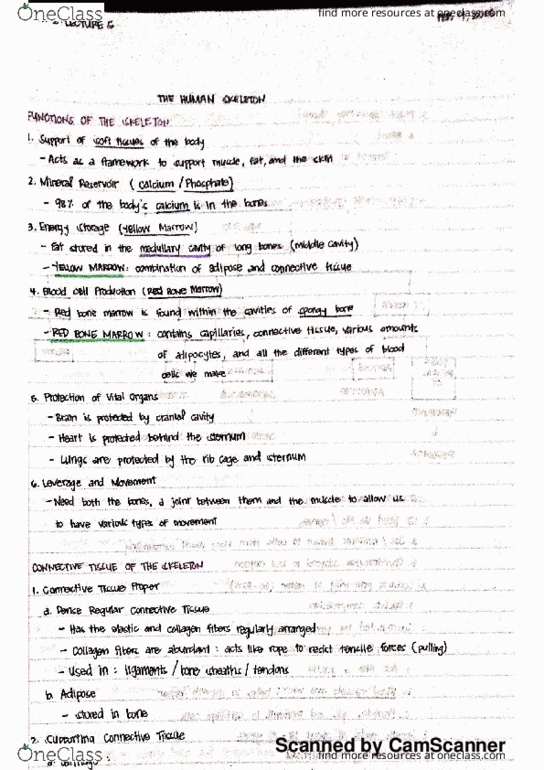 OneClass
find more resources at oneclass.com
- LECTURE 5
THE HUMAN SKELETON
FUNCTIONS OF THE SKELETON
1. Support of soft tissues of the body
- Acts as a framework to support muscle, fat, and the skin
2. Mineral Reservoir (Calcium / Phosphate)
- 98% of the body's calcium is in the bones
3. Energy Storage (Yellow Marrow)
- Fat stored in the medullary cavity of long bones (middle cavity)
- YELLOW MARROW: combination of adipose and connective tissue
4. Blood Cell Production (Red Bone Marrow)
- Red bone marrow is found within the cavities of spongy bone
- RED BONE MARROW: contains capillaries, connective tissue, various amounts
of adipocytes, and all the different types of blood
cells we make
5. Protection of Vital Organs
- Brain is protected by cranial cavity
- Heart is protected behind the sternum
- Lungs are protected by the rib cage and sternum
6. Leverage and Movement
- Need both the bones, a joint between them and the muscle to allow us
to have various types of movement
CONNECTIVE TISSUE OF THE SKELETON
1. Connective Tissue Proper
a. Dense Regular Connective Tissue
- Has the elastic and collagen fibers regularly arranged
- Collagen fibers are abundant: acts like rope to resist tensile forces (pulling)
- Used in: ligaments / bone sheaths / tendons
b. Adipose
- stored in bone
2. Supporting Connective Tissue
Scanned by CamScanner
OneClass
find more resources at oneclass.com